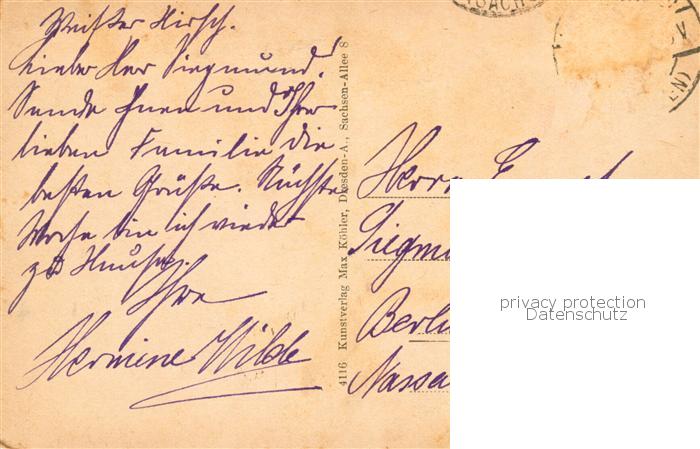 Weißer Hirsch.
Lieber Herr Siegmund.
Sende Ihnen und Ihrer
lieben Familie die
besten Grüße. Nächste
Woche bin ich wieder
zu Hause.
Ihre
Hermine Wilde
4116 Kunstverlag Max Köhler, Dresden-A., Sachsen-Allee 8
Herrn
Siegm
Berli
Nassa
privacy protection
Datenschutz